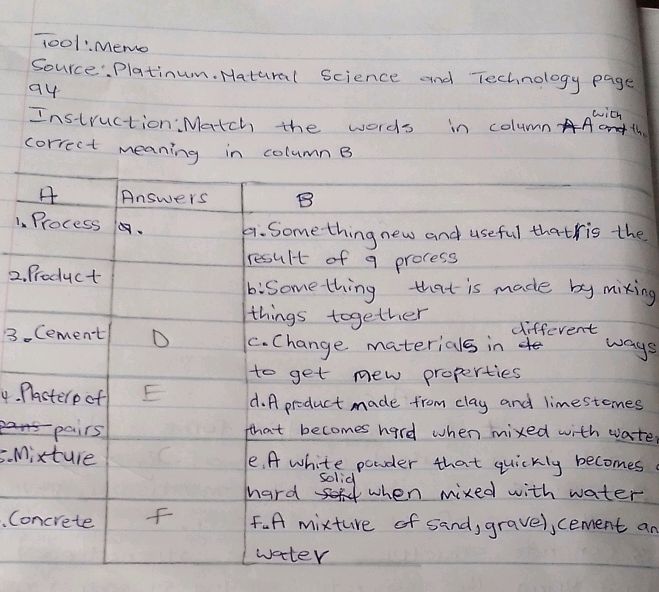 Tool:Memo
Source:Platinum.Natural Science and Technology page
94
Instruction:Match the words in column A with the
correct meaning in column B
A Answers B
1. Process a. a.Something new and useful that is the
result of a process
2.Product b:Something that is made by mixing
things together
3.Cement D c.Change materials in different ways
to get new properties
4.Plasterp of E d.A product made from clay and limestomes
pairs that becomes hard when mixed with water
5.Mixture C e.A white powder that quickly becomes a
hard solid when mixed with water
.Concrete F F.A mixture of sand, gravel, cement an
water